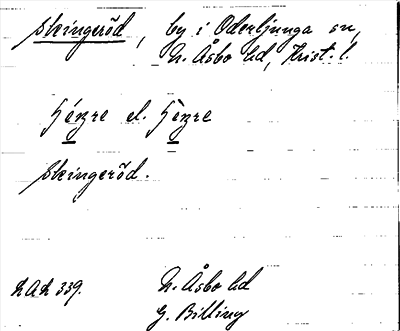 Skingeröd, by i Oderljunga sn,
N. Åsbo hd, Krist. l.
el.
Skingeröd.
LAL 339.
N. Åsbo hd
G. Billing